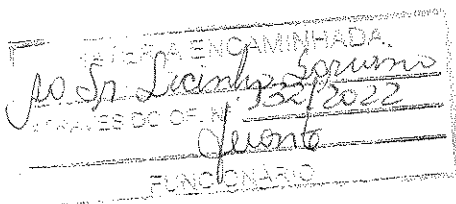 MATÉRIA ENCAMINHADA
Ao Sr. Lucinho Soprano
ATRAVÉS DO OF. N. 932/2022
FUNCIONÁRIO